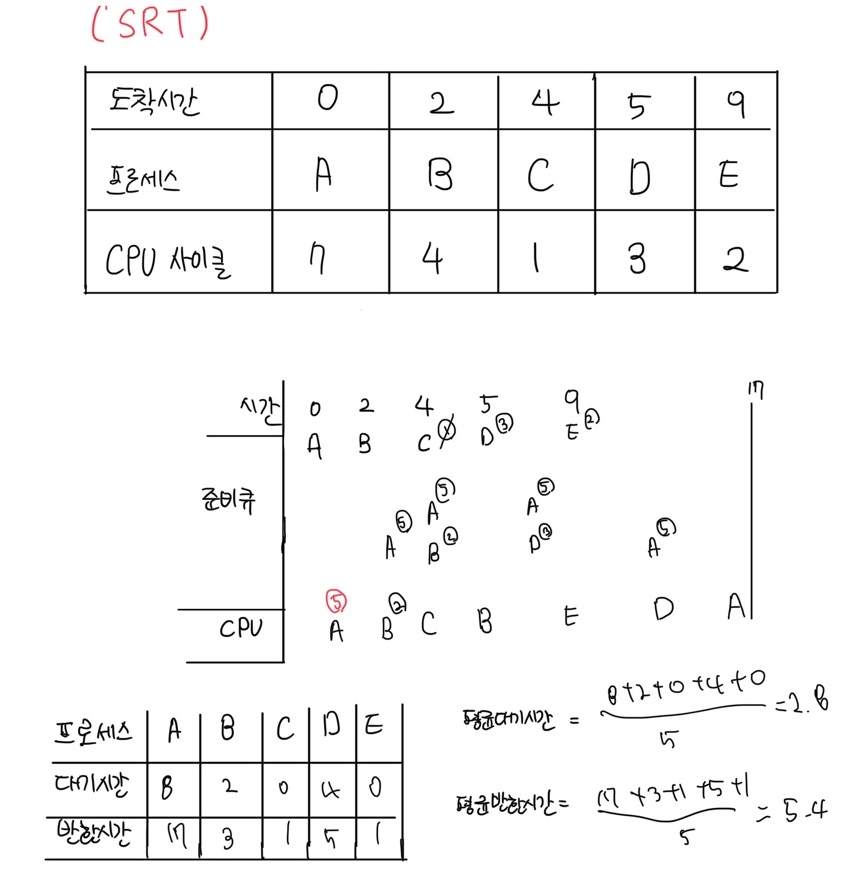 (SRT)
도착시간 0 2 4 5 9
프로세스 A B C D E
CPU 사이클 7 4 1 3 2
17
시간 0 2 4 5 9
A B C 1 D 3 E 2
준비큐
A 5 A 5
A 5 B 2 D 3 A 5
5 2
CPU A B C B E D A
프로세스 A B C D E
대기시간 8 2 0 4 0
반환시간 17 3 1 5 1
평균대기시간 = 8+2+0+4+0 / 5 = 2.8
평균반환시간 = 17+3+1+5+1 / 5 = 5.4